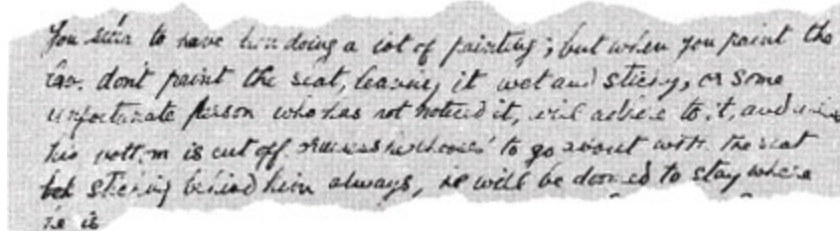 You seem to have been doing a lot of painting; but when you paint the
Lav. don't paint the seat, leaving it wet and sticky, or some
unfortunate person who has not noticed it, will adhere to it, and unless
his bottom is cut off or unless he chooses to go about with the seat
sticking behind him always, he will be doomed to stay where
he is